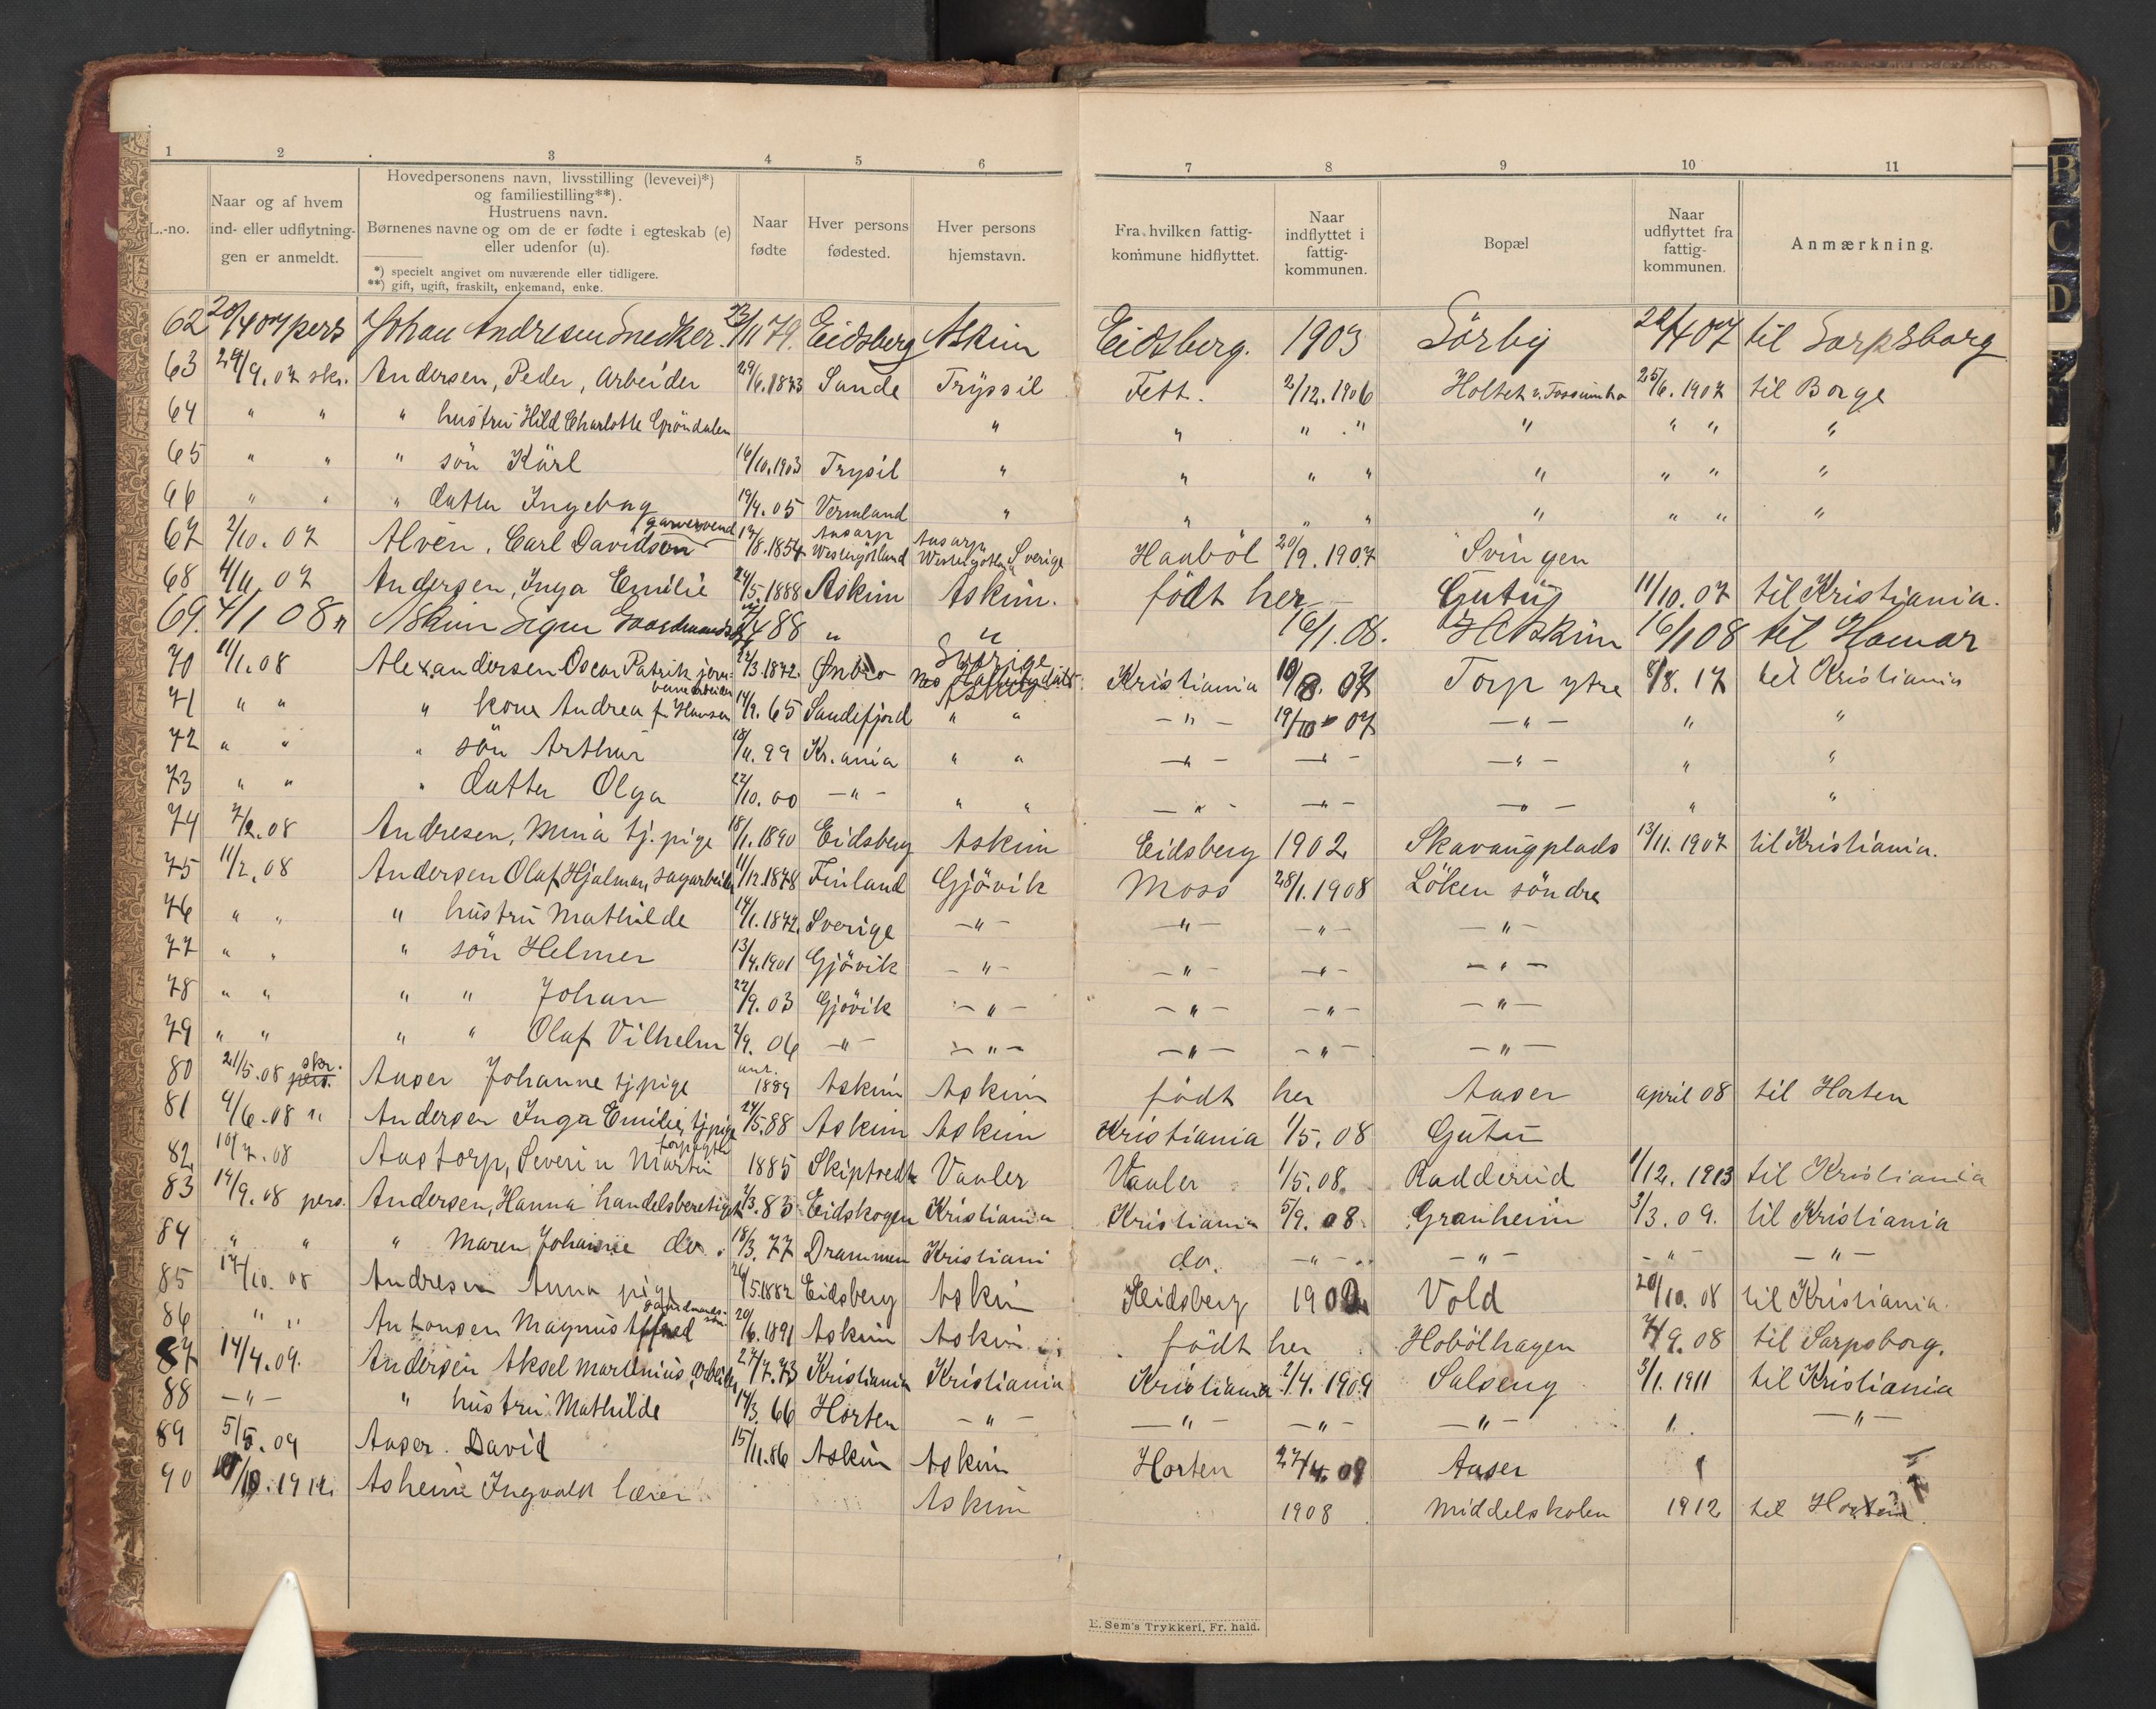 1 2 3 4 5 6 7 8 9 10 11
L.-no.
Naar og af hvem ind- eller udflytningen er anmeldt.
Hovedpersonens navn, livsstilling (levevei)*) og familiestilling**).
Hustruens navn.
Børnenes navne og om de er fødte i egteskab (e) eller udenfor (u).
*) specielt angivet om nuværende eller tidligere.
**) gift, ugift, fraskilt, enkemand, enke.
Naar fødte
Hver persons fødested.
Hver persons hjemstavn.
Fra hvilken fattigkommune hidflyttet.
Naar indflyttet i fattigkommunen.
Bopæl
Naar udflyttet fra fattigkommunen.
Anmærkning.
62 20/4 07 pers Johan Andresen Snedker. 23/11 79. Eidsberg Askim Eidsberg. 1903 Sörby 20/4 07 til Sarpsborg
63 24/9.07 skr. Andersen, Peder, Arbeider 29/6.1873 Sande Tryssil Fett. 2/12.1906 Holtet v. Fossumbro 25/6.1907 til Borge
64 " " " hustru Hild Charlotte Gröndalen " " " " " " " "
65 " " " sön Karl 16/10.1903 Trysil " " " " " " " "
66 " " " datter Ingeborg 19/4.05 Vermland " " " " " " " "
67 2/10.07 Alvén, Carl Davidson garversvend 12/8.1854 Ansarp Westergötland Ansarp Westergötland Sverige Haaböl 20/9.1907 Svingen
68 4/11.07 Andersen, Inga Emilie 24/5.1888 Askim Askim. födt her Gutu 11/10.07 til Kristiania.
69. 4/1 08 " Askim Sigur Gaardmands 4 88 " " 16/1.08. H Askim 16/1 08 til Hamar
70 11/1.08 Alexandersen Oscar Patrik jernbanearbeider 22/3.1872. Ørebro Sverige Kristiania 10/8.07 Torp ytre 8/8.17 til Kristiania
71 " " " kone Andrea f. Hansen 14/9.65 Sandefjord " " — " — 19/10 07 — " — " "
72 " " " sön Arthur 18/11.99 Kr.ania " " — " — — " — — " — " "
73 " " " datter Olga 22/10.00 — " — " " — " — — " — — " — " "
74 7/2.08 Andresen, Mina tj.pige 18/1.1890 Eidsberg Askim Eidsberg 1902 Skavangplads 13/11.1907 til Kristiania.
75 11/2.08 Andersen Olaf Hjalmar, sagarbeider 11/12.1878 Finland Gjövik Moss 28/1.1908 Löken söndre
76 " " " hustru Mathilde 14/1.1872. Sverige — " — — " — — " — — " —
77 " " " sön Helmer 13/4.1901 Gjövik — " — — " — — " — — " —
78 " " " " Johan 22/9.03 Gjövik — " — — " — — " — — " —
79 " " " " Olaf Vilhelm 2/9.06 — " — — " — — " — — " — — " —
80 21/5.08 skr. pers. Aaser Johanne tj.pige ant. 1889 Askim Askim födt her Aaser april 08 til Horten
81 9/6.08 " Andersen Inga Emilie, tj.pige 24/5.88 Askim Askim Kristiania 1/5.08 Gutu
82. 10/7.08 Aastorp, Severin Martin forpagter 1885 Skiptvedt Vaaler Vaaler 1/5.08. Radderud 1/12.1913 til Kristiania
83 14/9.08 pers. Andersen, Hanna handelsberetiget 2/3.83 Eidskogen Kristiania Kristiania 5/9.08. Granheim 3/3.09. til Kristiania
84 " " " Maren Johanne do. 18/3.77 Drammen Kristiani do. — " — — " — — " — — " —
85 14/10.08 Andresen Anna pige 26/5.1882 Eidsberg Askim Eidsberg 1902 Vold 20/10.08 til Kristiania.
86 " " Antonsen Magnus Alfred gaardmandssön 20/6.1891 Askim Askim födt her Hobölhagen 7/9.08 til Sarpsborg.
87 14/4.09. Andersen Aksel Martinius, Arbeider 27/7.73 Kristiania Kristiania Kristiania 2/4.1909 Salseng 3/1.1911 til Kristiania
88 — " — " hustru Mathilde 14/3.66 Horten — " — — " — — " — — " — " — " —
89 5/5.09 Aaser. David 15/11.86 Askim Askim Horten 27/4.09 Aaser
90 10.1912. Asheim Ingvald lærer Askim 1908 Middelskolen 1912 til Horten
E. Sem's Trykkeri, Fr. hald.
B
C
D